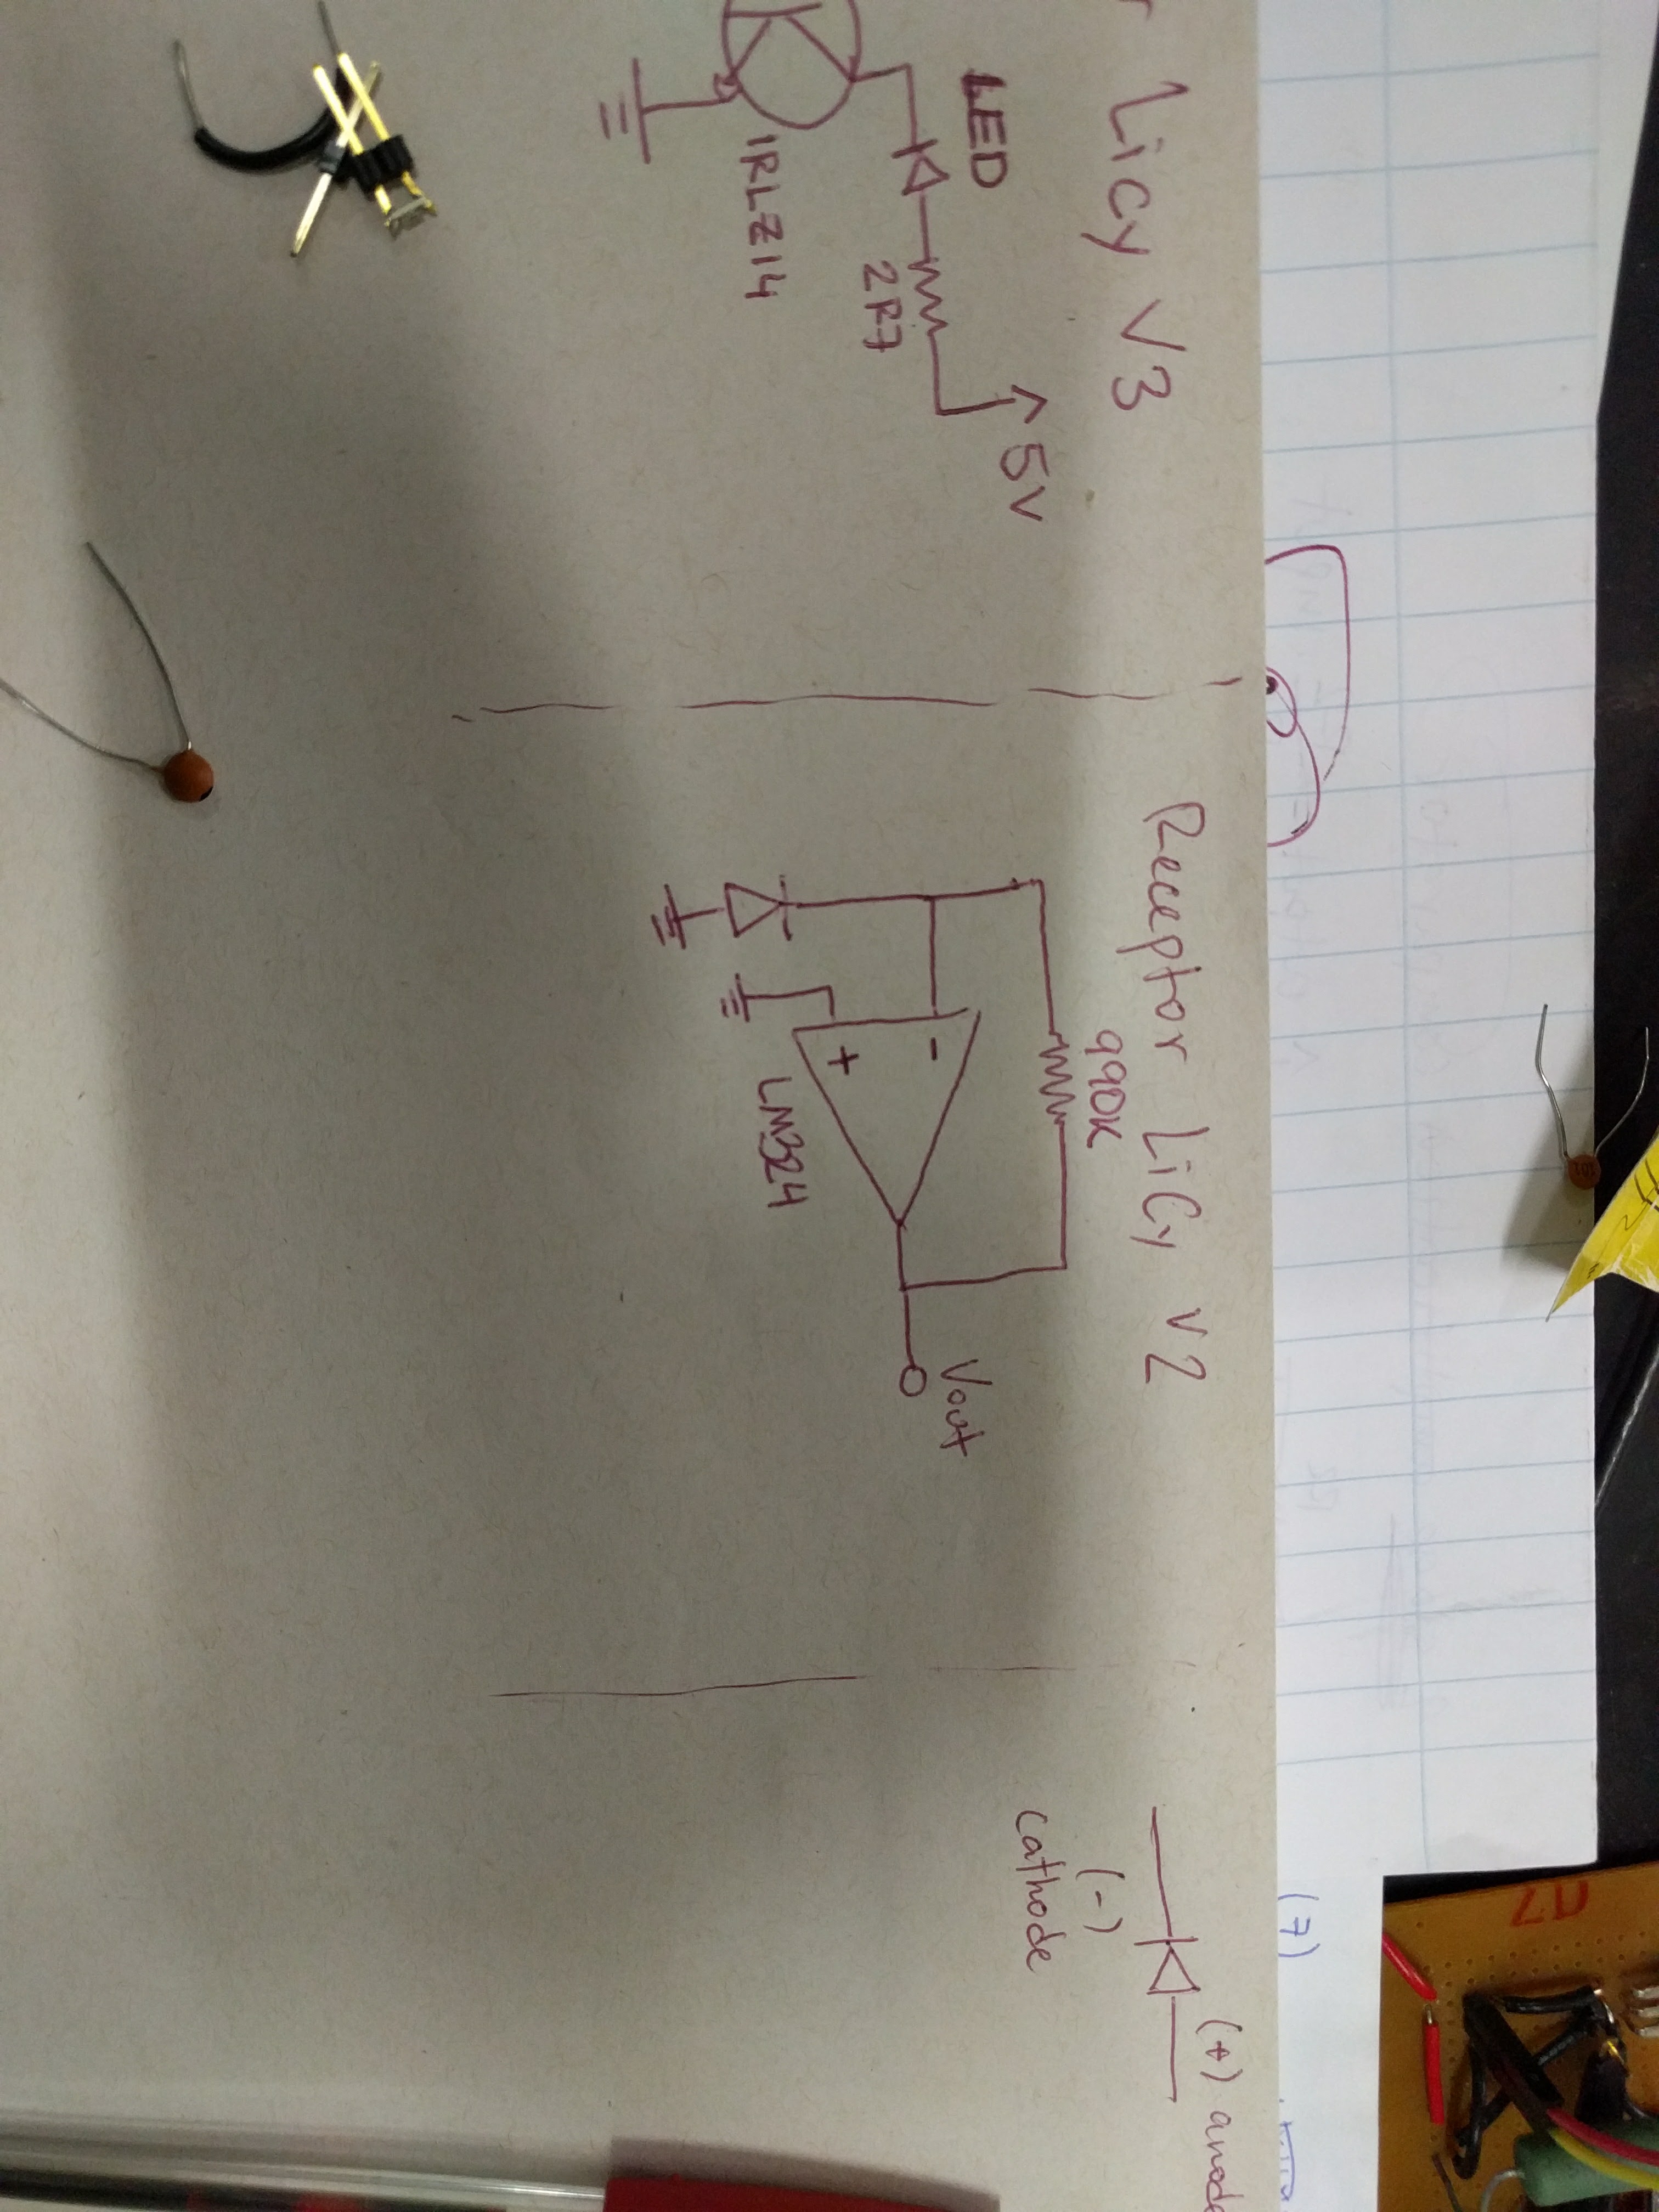 r Licy V3
LED
2R7
5V
IRLZ14
Receptor LiCy v2
990K
-
+
LM324
Vout
(+) anode
(-)
cathode
(7)